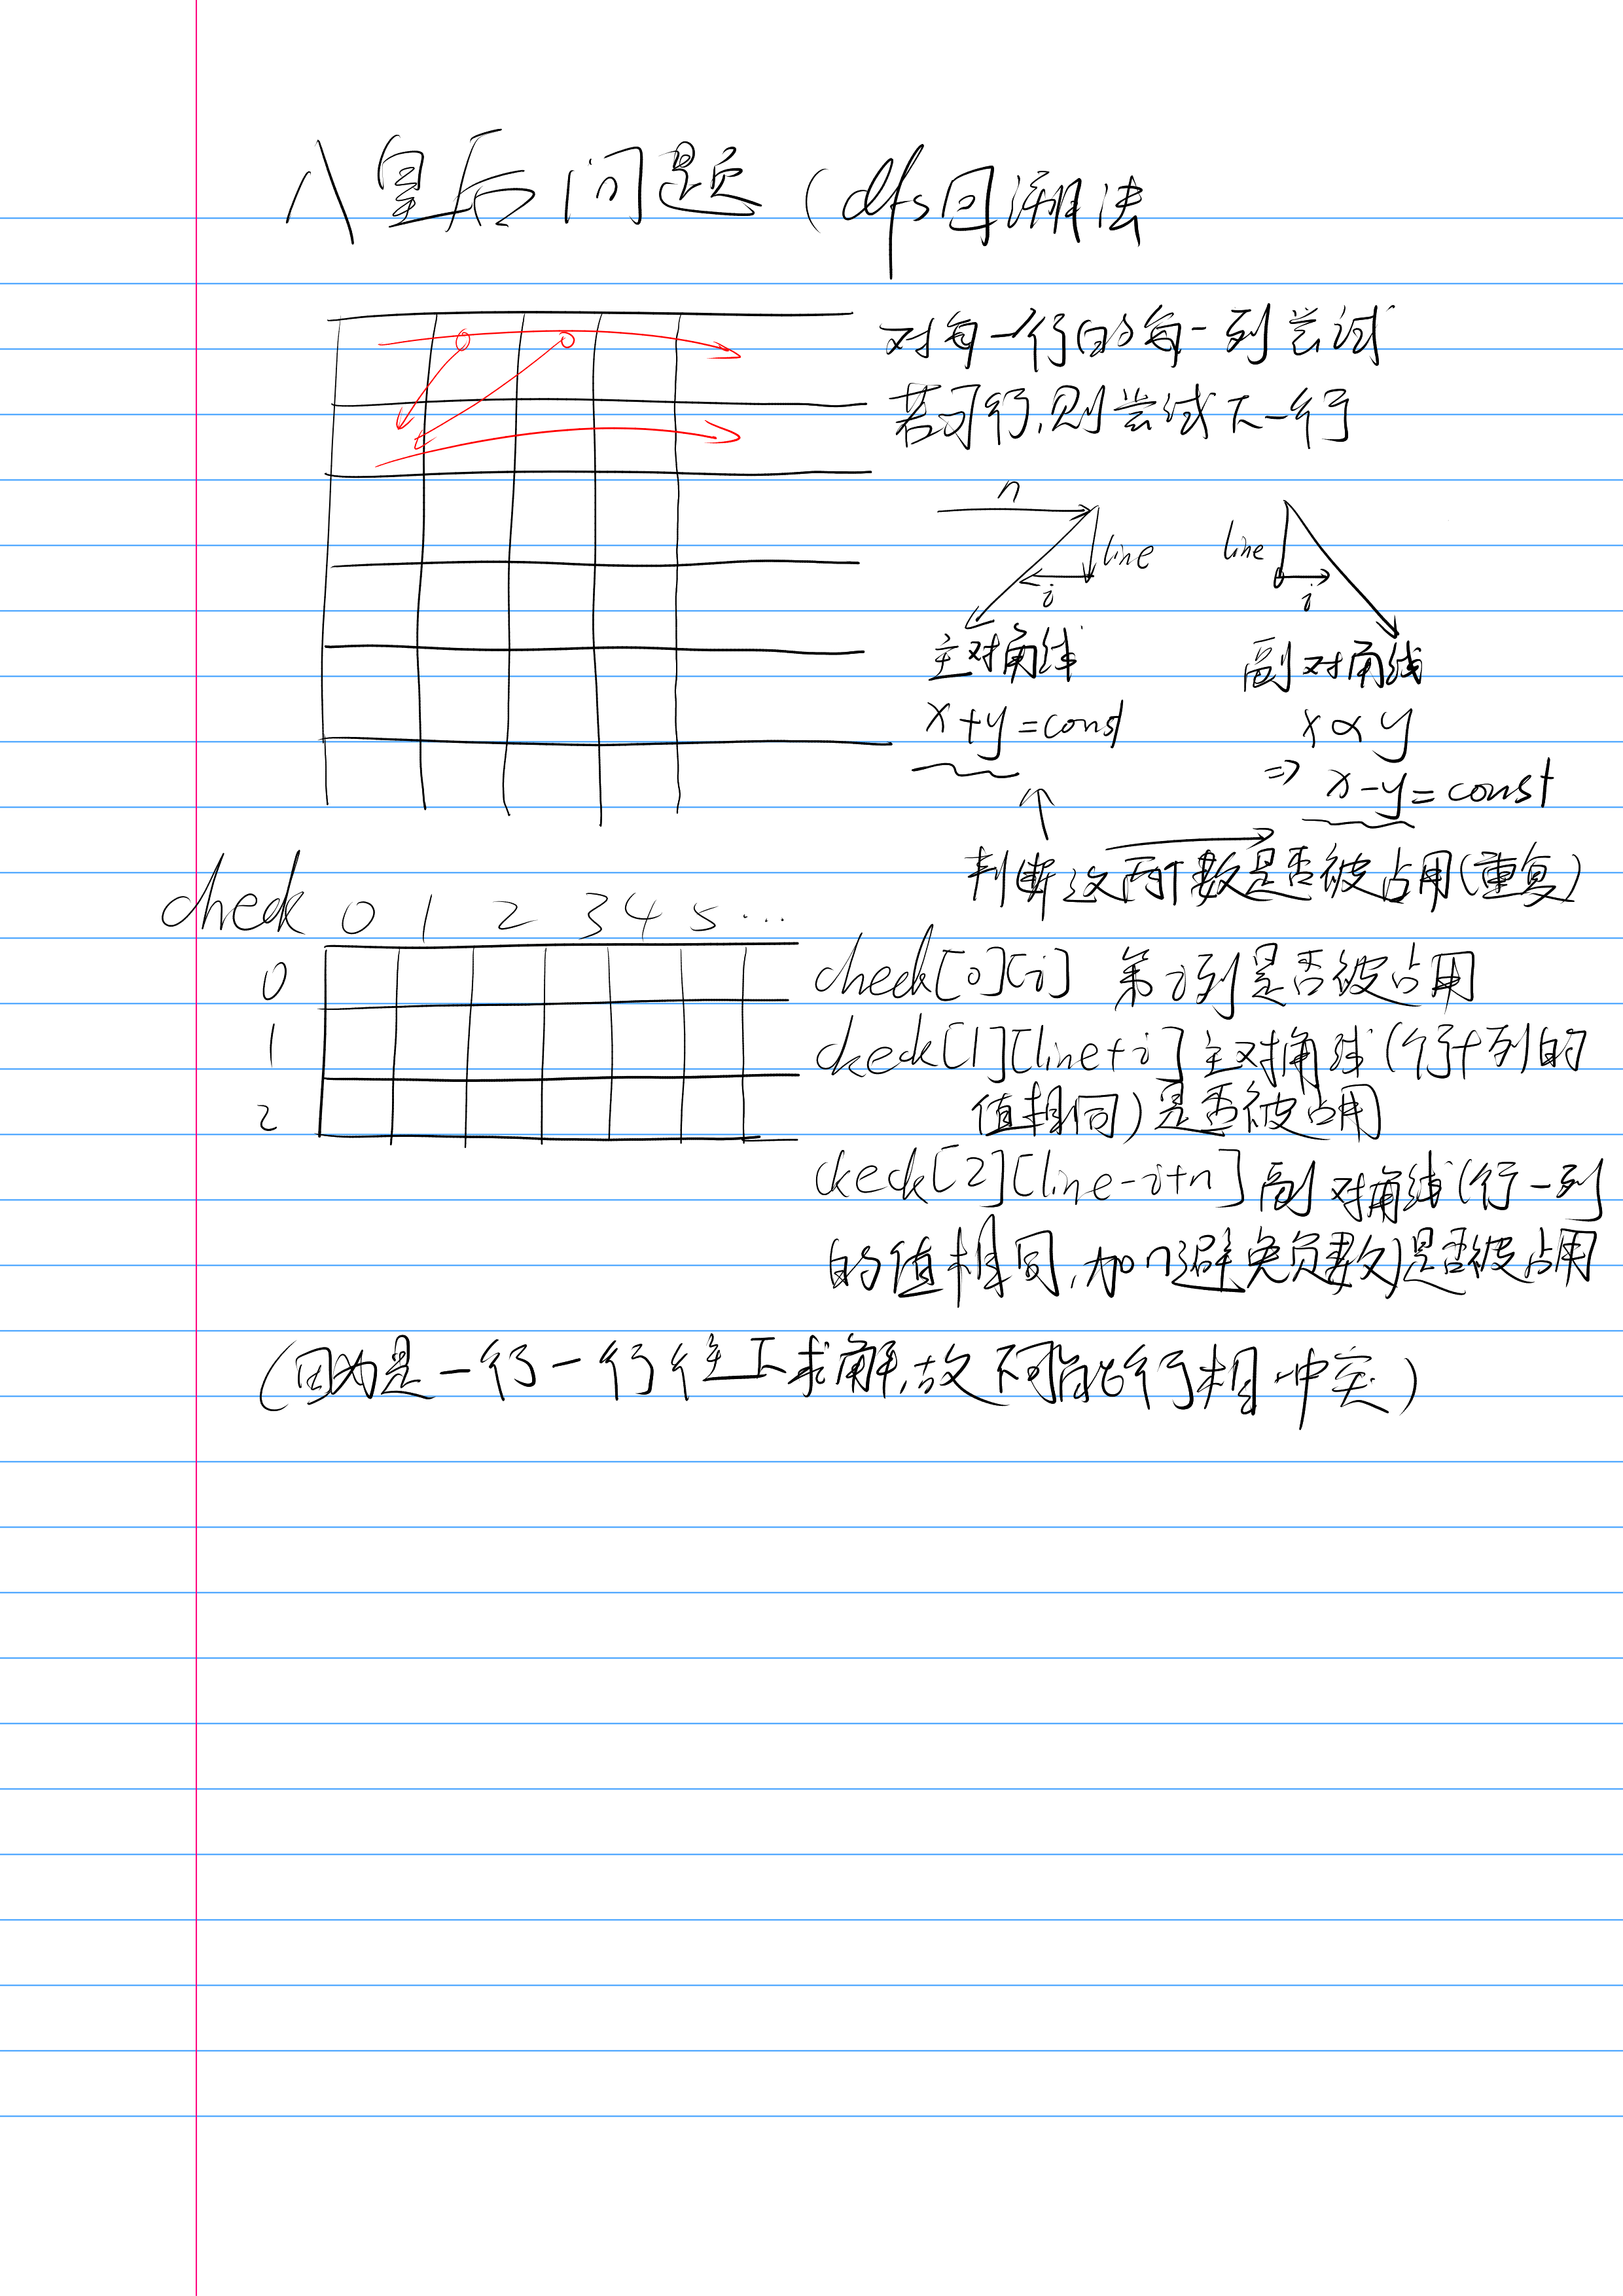 八皇后问题(dfs回溯法
对每一行的每一列尝试
若可行,则尝试下一行
n
line
i
line
i
主对角线
x+y=const
副对角线
x∝y
⇒ x-y=const
判断这两个数是否被占用(重复)
check 0 1 2 3 4 5 ...
0
1
2
check[0][i] 第i列是否被占用
check[1][line+i] 主对角线(行+列的
值相同)是否被占用
check[2][line-i+n] 副对角线(行-列
的值相同,加n避免负数)是否被占用
(因为是一行一行往下求解,故不可能行相冲突)